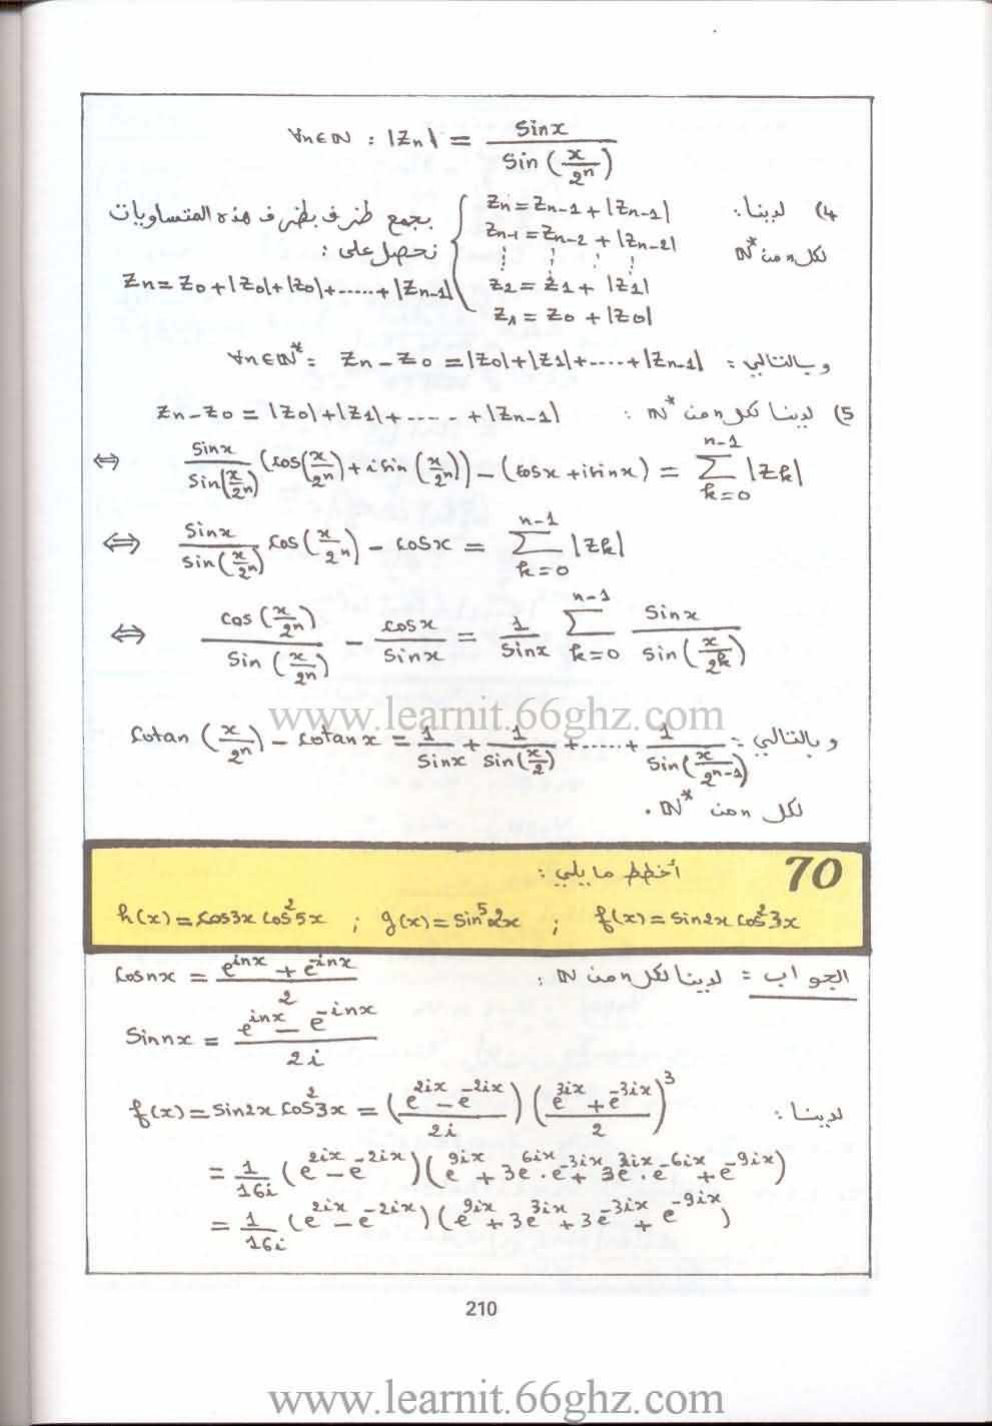 ∀n∈ℕ : |Zn| = Sinx / Sin(x/2ⁿ)
4) لدينا: Zn = Zn-1 + |Zn-1| بجمع طرف بطرف هذه المتساويات
لكل n من ℕ* Zn-1 = Zn-2 + |Zn-2| نحصل على :
Z2 = Z1 + |Z1| Zn = Z0 + |Z0| + |Z0| + ..... + |Zn-1|
Z1 = Z0 + |Z0|
وبالتالي : ∀n∈ℕ* : Zn - Z0 = |Z0| + |Z1| + .... + |Zn-1|
5) لدينا لكل n من ℕ* : Zn - Z0 = |Z0| + |Z1| + .... + |Zn-1|
⇔ Sinx / Sin(x/2ⁿ) (cos(x/2ⁿ) + i sin(x/2ⁿ)) - (cosx + i sinx) = Σ_{k=0}^{n-1} |Zk|
⇔ Sinx / sin(x/2ⁿ) cos(x/2ⁿ) - cosx = Σ_{k=0}^{n-1} |Zk|
⇔ cos(x/2ⁿ) / Sin(x/2ⁿ) - cosx / Sinx = 1/Sinx Σ_{k=0}^{n-1} Sinx / sin(x/2ᵏ)
www.learnit.66ghz.com
وبالتالي : Cotan(x/2ⁿ) - cotanx = 1/Sinx + 1/Sin(x/2) + ..... + 1/Sin(x/2ⁿ⁻¹)
لكل n من ℕ* .
70 أخطط مايلي :
f(x) = Sin2x cos²3x ; g(x) = Sin⁵2x ; h(x) = cos3x cos²5x
الجواب : لدينا لكل n من ℕ : Cosnx = (e^{inx} + e^{-inx}) / 2
Sinnx = (e^{inx} - e^{-inx}) / 2i
لدينا : f(x) = Sin2x cos²3x = ((e^{2ix} - e^{-2ix}) / 2i) ((e^{3ix} + e^{-3ix}) / 2)³
= 1/16i (e^{2ix} - e^{-2ix})(e^{9ix} + 3e^{6ix}.e^{-3ix} + 3e^{3ix}.e^{-6ix} + e^{-9ix})
= 1/16i (e^{2ix} - e^{-2ix})(e^{9ix} + 3e^{3ix} + 3e^{-3ix} + e^{-9ix})
210
www.learnit.66ghz.com